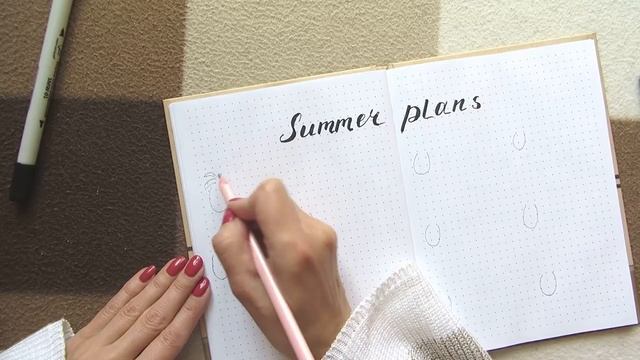 Summer plans